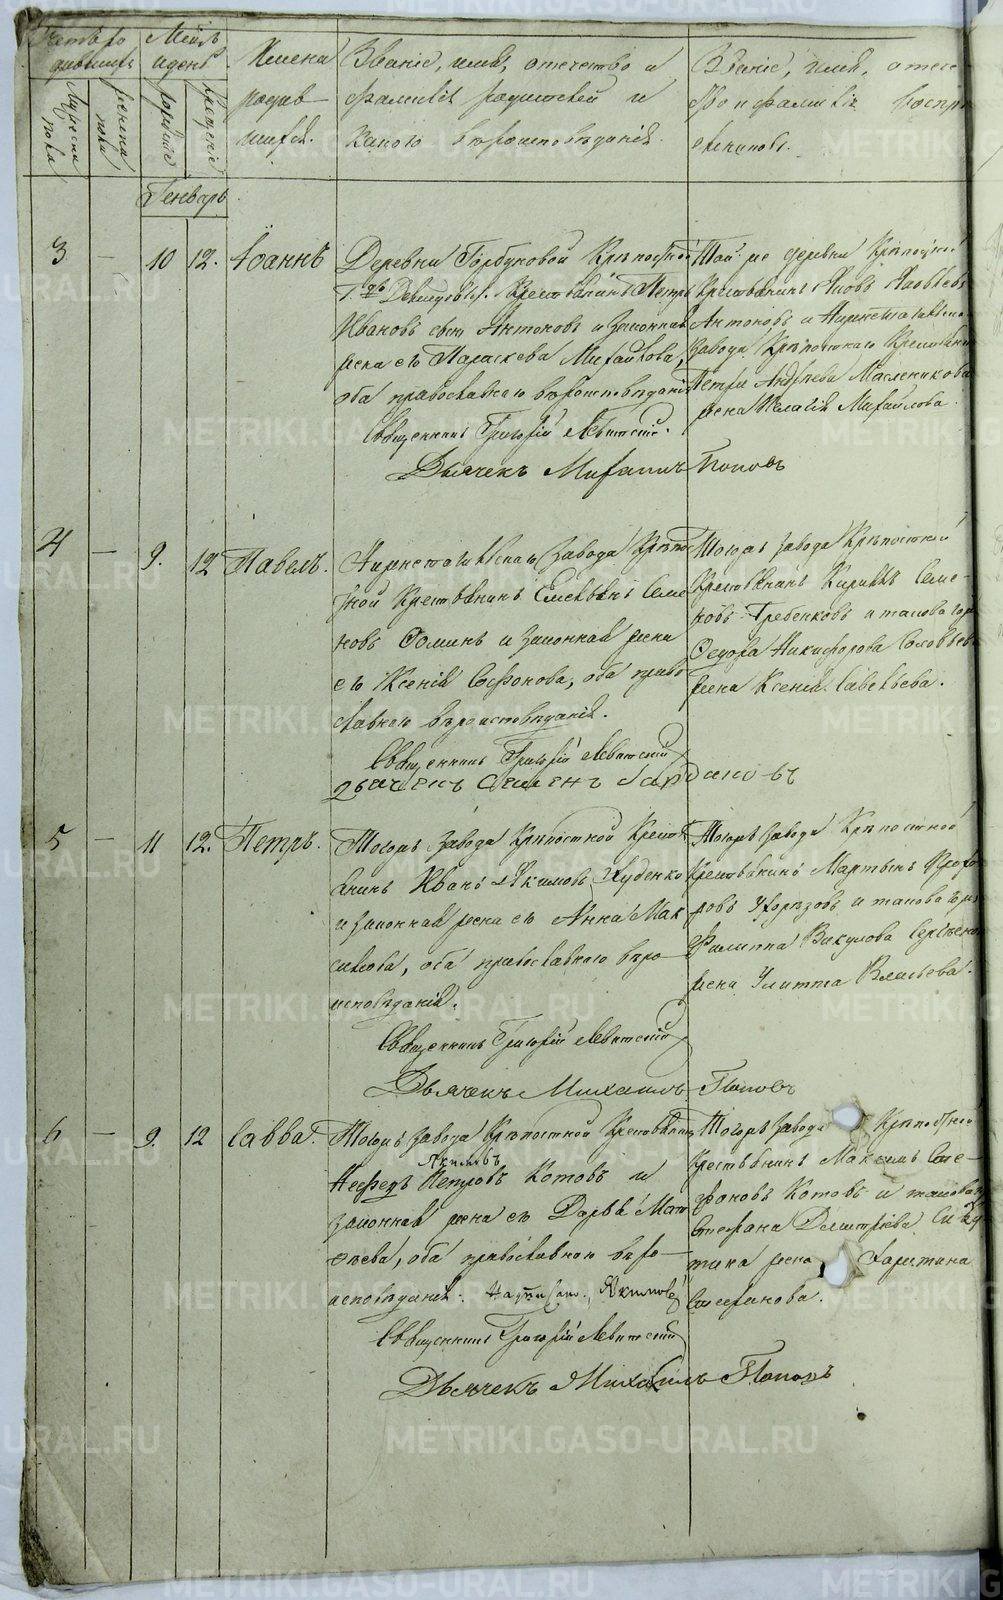 Счетъ ро
дившихъ
Мужеска
пола
женска
пола
Мѣсяцъ
и день
рожденіе
крещеніе
Имена
родив
шихся.
Званіе, имя, отечество и
фамилія родителей и
какого вѣроисповѣданія.
Званіе, имя, отече
ство и фамилія воспрі
емниковъ.
Генварь
3 — 10 12. Іоаннъ
Деревни Горбуновой Крѣпостной
Крестьянинъ Петръ
Ивановъ сынъ Антоновъ и законная
жена его Параскева Михайлова,
оба православнаго вѣроисповѣданія
Священникъ Григорій Левитскій.
Дьячекъ Михаилъ Поповъ
Той же деревни Крѣпостной
Крестьянинъ Яковъ Яковлевъ
Антоновъ и
завода Крѣпостнаго Крестьянина
Петра Андрѣева Масленикова
жена Пелагія Михайлова.
4 — 9. 12 Павелъ.
завода Крѣпост
ной Крестьянинъ Емельянъ Семе
новъ Ѳоминъ и законная жена
его Ксенія Софонова, оба право
славнаго вѣроисповѣданія.
Священникъ Григорій Левитскій
дьячекъ Симеонъ
Тогожъ завода Крѣпостной
Крестьянинъ Кириллъ Семе-
новъ Гребенковъ и таковагожъ
Ѳедора Никифорова Соловьева
жена Ксенія Савельева.
5 — 11 12. Петръ.
Тогожъ завода Крѣпостной Кресть
янинъ Иванъ Якимовъ Худенко
и законная жена его Анна Мак
симова, оба православнаго вѣро
исповѣданія.
Священникъ Григорій Левитскій
Дьячекъ Михаилъ Поповъ
Тогожъ завода Крѣпостной
Крестьянинъ Мартынъ Прохо
ровъ и таковагожъ
Филиппа Викулова
жена Улитта Власьева.
6 — 9. 12 Савва.
Тогожъ завода Крѣпостной Крестьянинъ
Якимовъ
Петровъ Котовъ и
законная жена его Дарья Мат
вѣева, оба православнаго вѣро
исповѣданія. Надписано: Якимовъ
Священникъ Григорій Левитскій
Дьячекъ Михаилъ Поповъ
Тогожъ завода Крѣпостной
Крестьянинъ Максимъ Сте-
фановъ Котовъ и таковагожъ
Стефана Димитріева
жена Харитина
Стефанова.
METRIKI.GASO-URAL.RU